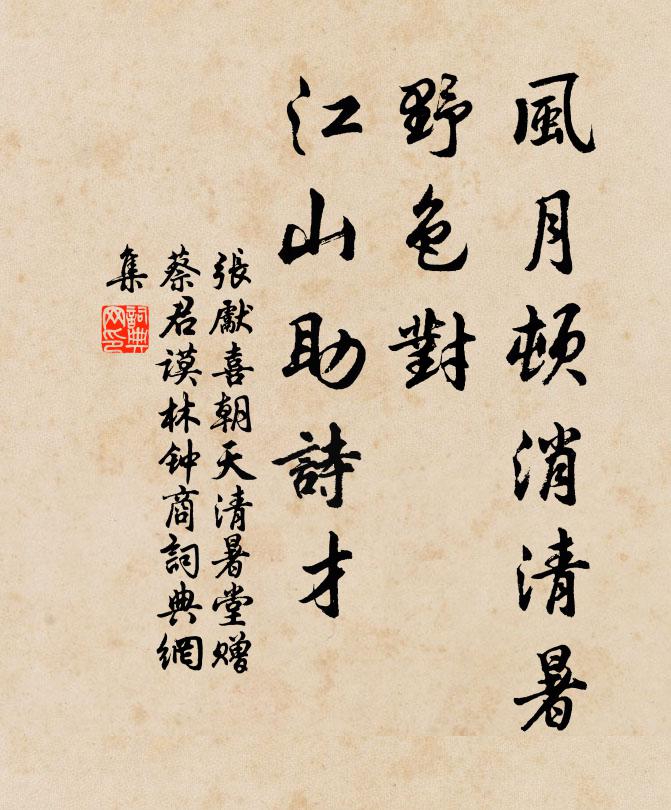 風月頓消清暑
野色對
江山助詩才
張獻喜朝天清暑堂赠
蔡君谟林钟商詞典網
集
詞典
网印